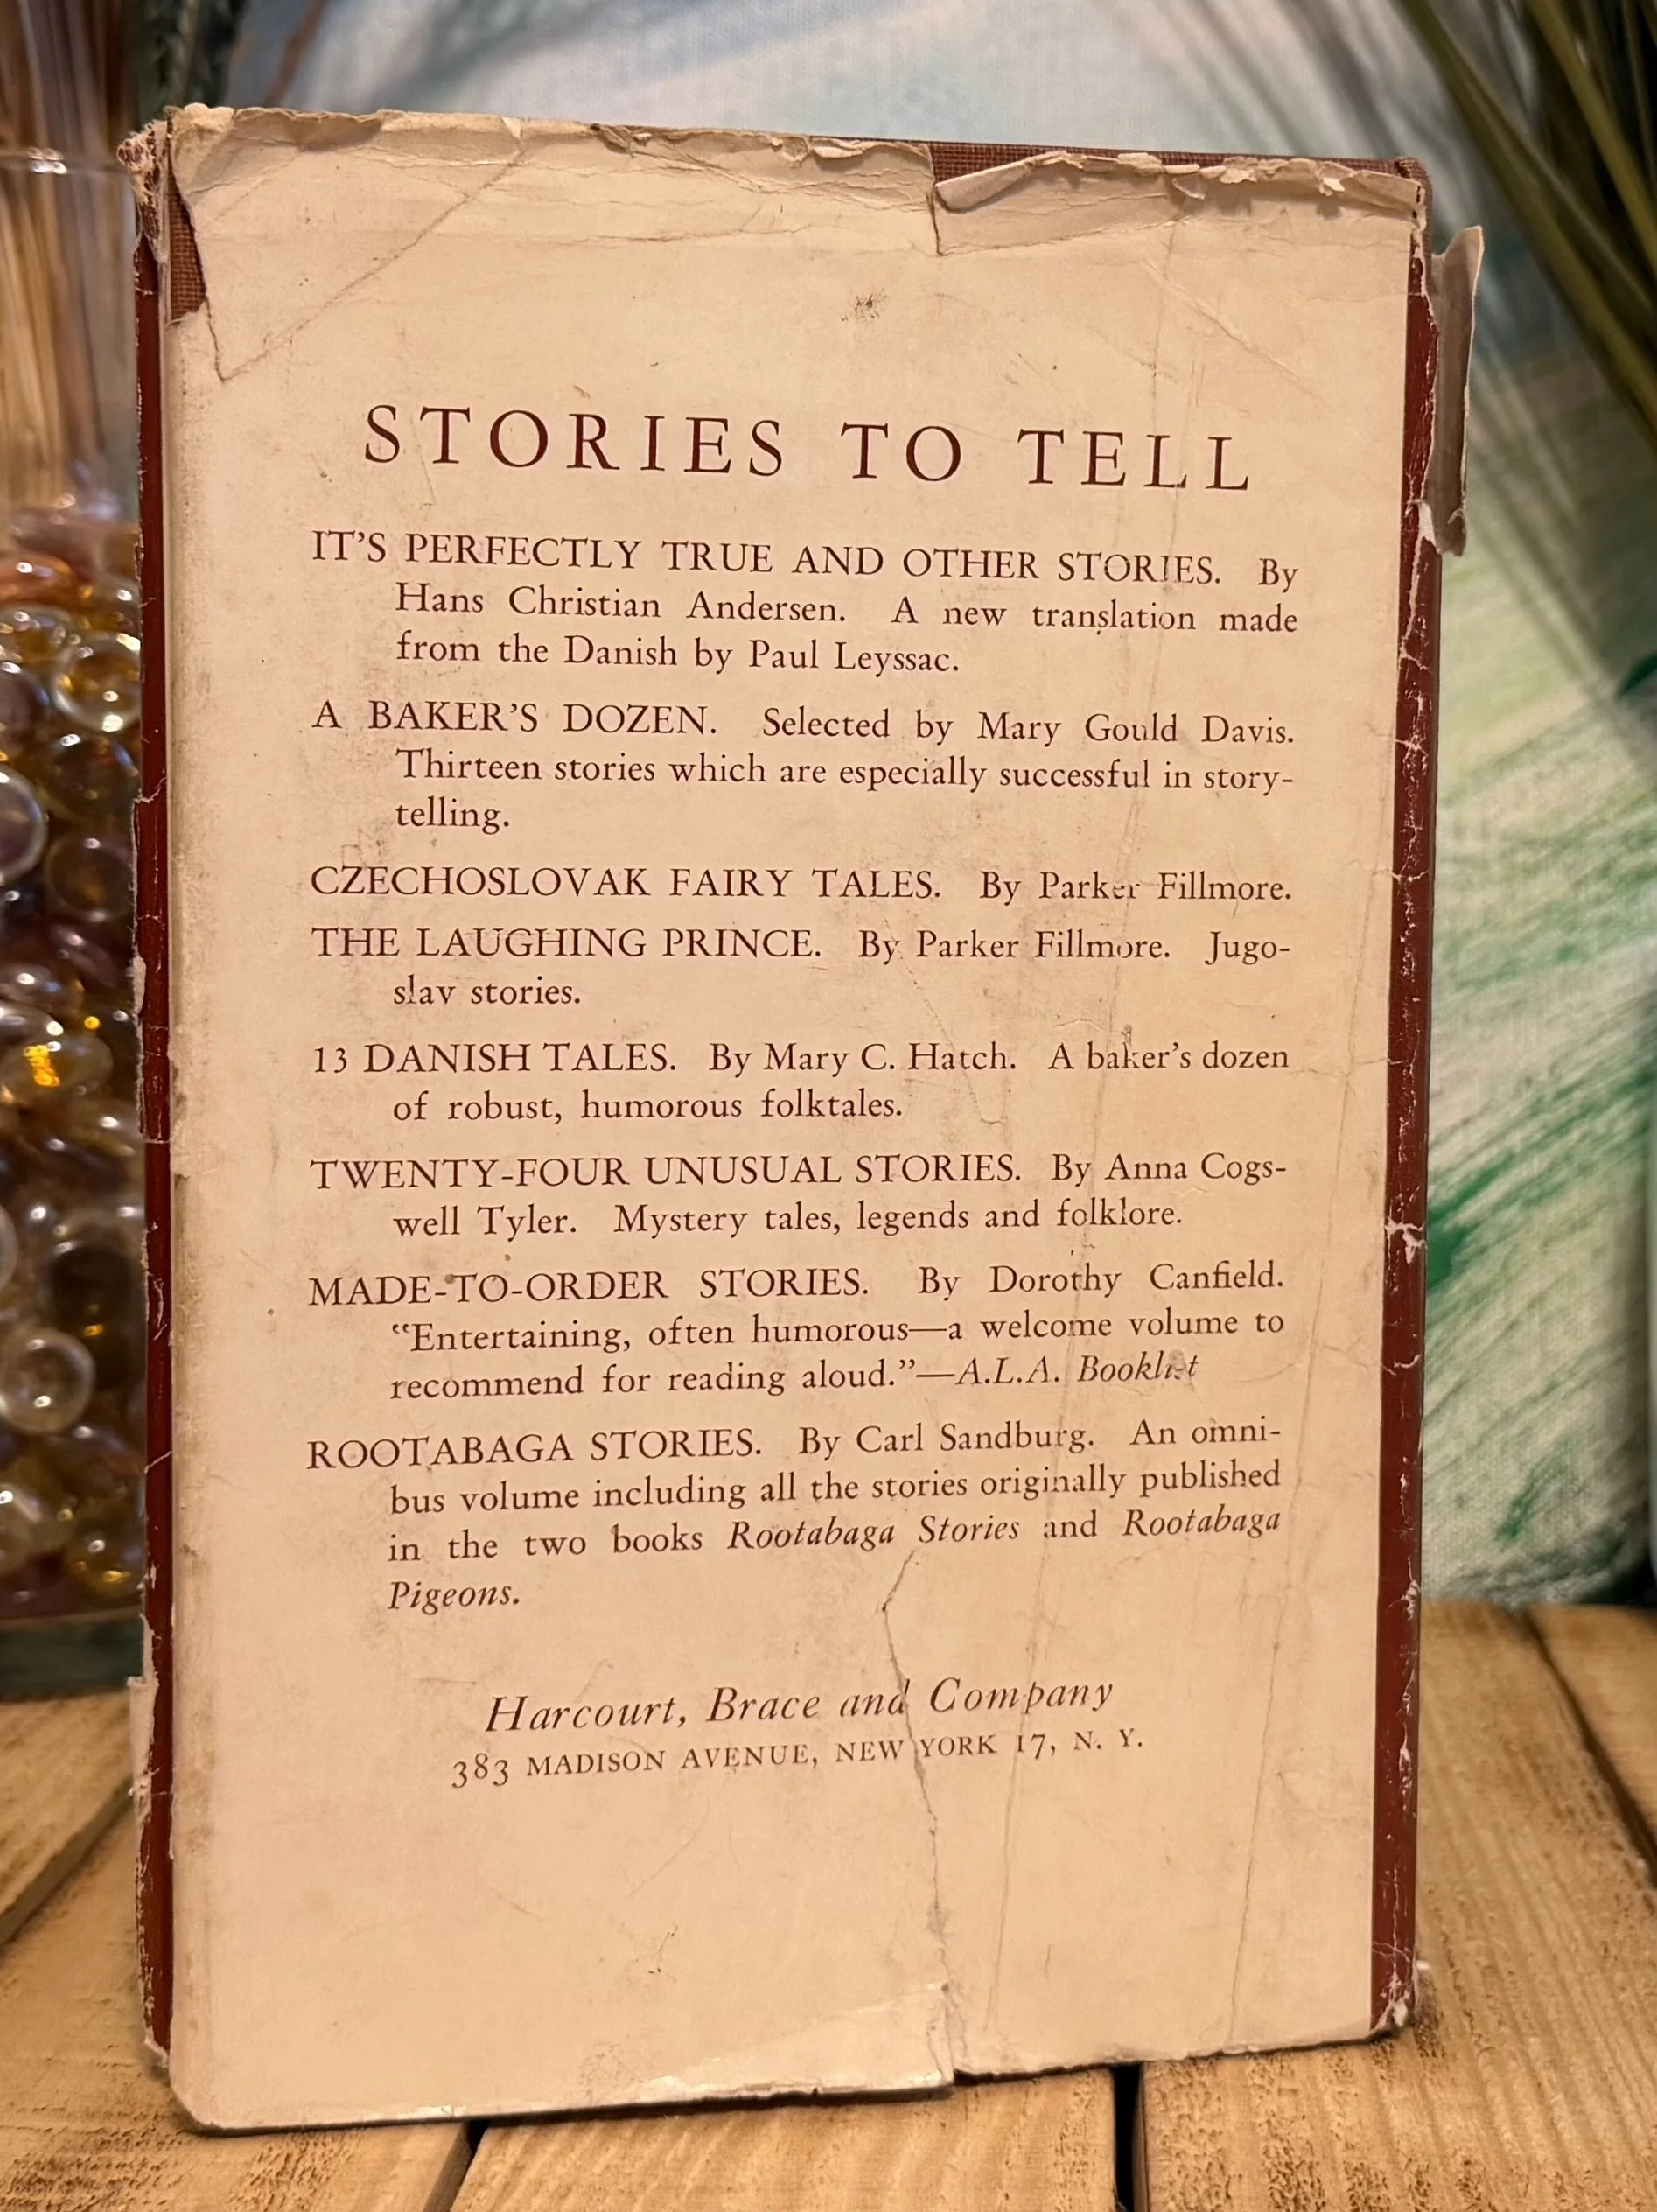 STORIES TO TELL
IT'S PERFECTLY TRUE AND OTHER STORIES. By
Hans Christian Andersen. A new translation made
from the Danish by Paul Leyssac.
A BAKER'S DOZEN. Selected by Mary Gould Davis.
Thirteen stories which are especially successful in story-
telling.
CZECHOSLOVAK FAIRY TALES. By Parker Fillmore.
THE LAUGHING PRINCE. By Parker Fillmore. Jugo-
slav stories.
13 DANISH TALES. By Mary C. Hatch. A baker's dozen
of robust, humorous folktales.
TWENTY-FOUR UNUSUAL STORIES. By Anna Cogs-
well Tyler. Mystery tales, legends and folklore.
MADE-TO-ORDER STORIES. By Dorothy Canfield.
"Entertaining, often humorous—a welcome volume to
recommend for reading aloud."—A.L.A. Booklist
ROOTABAGA STORIES. By Carl Sandburg. An omni-
bus volume including all the stories originally published
in the two books Rootabaga Stories and Rootabaga
Pigeons.
Harcourt, Brace and Company
383 MADISON AVENUE, NEW YORK 17, N. Y.